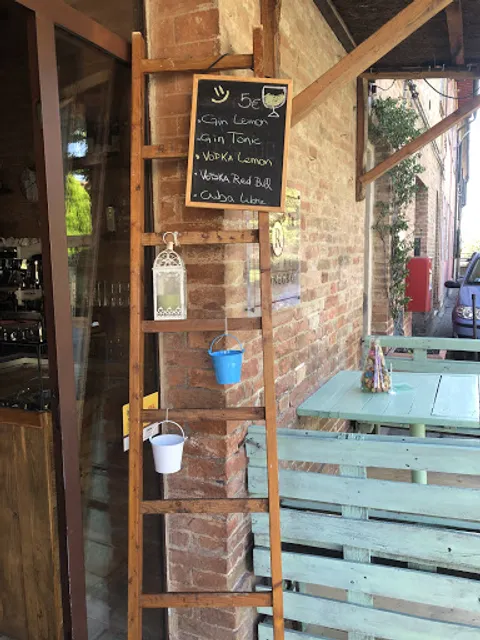 5€
• Gin Lemon
• Gin Tonic
• VODKA Lemon
• VODKA Red Bull
• Cuba Libre